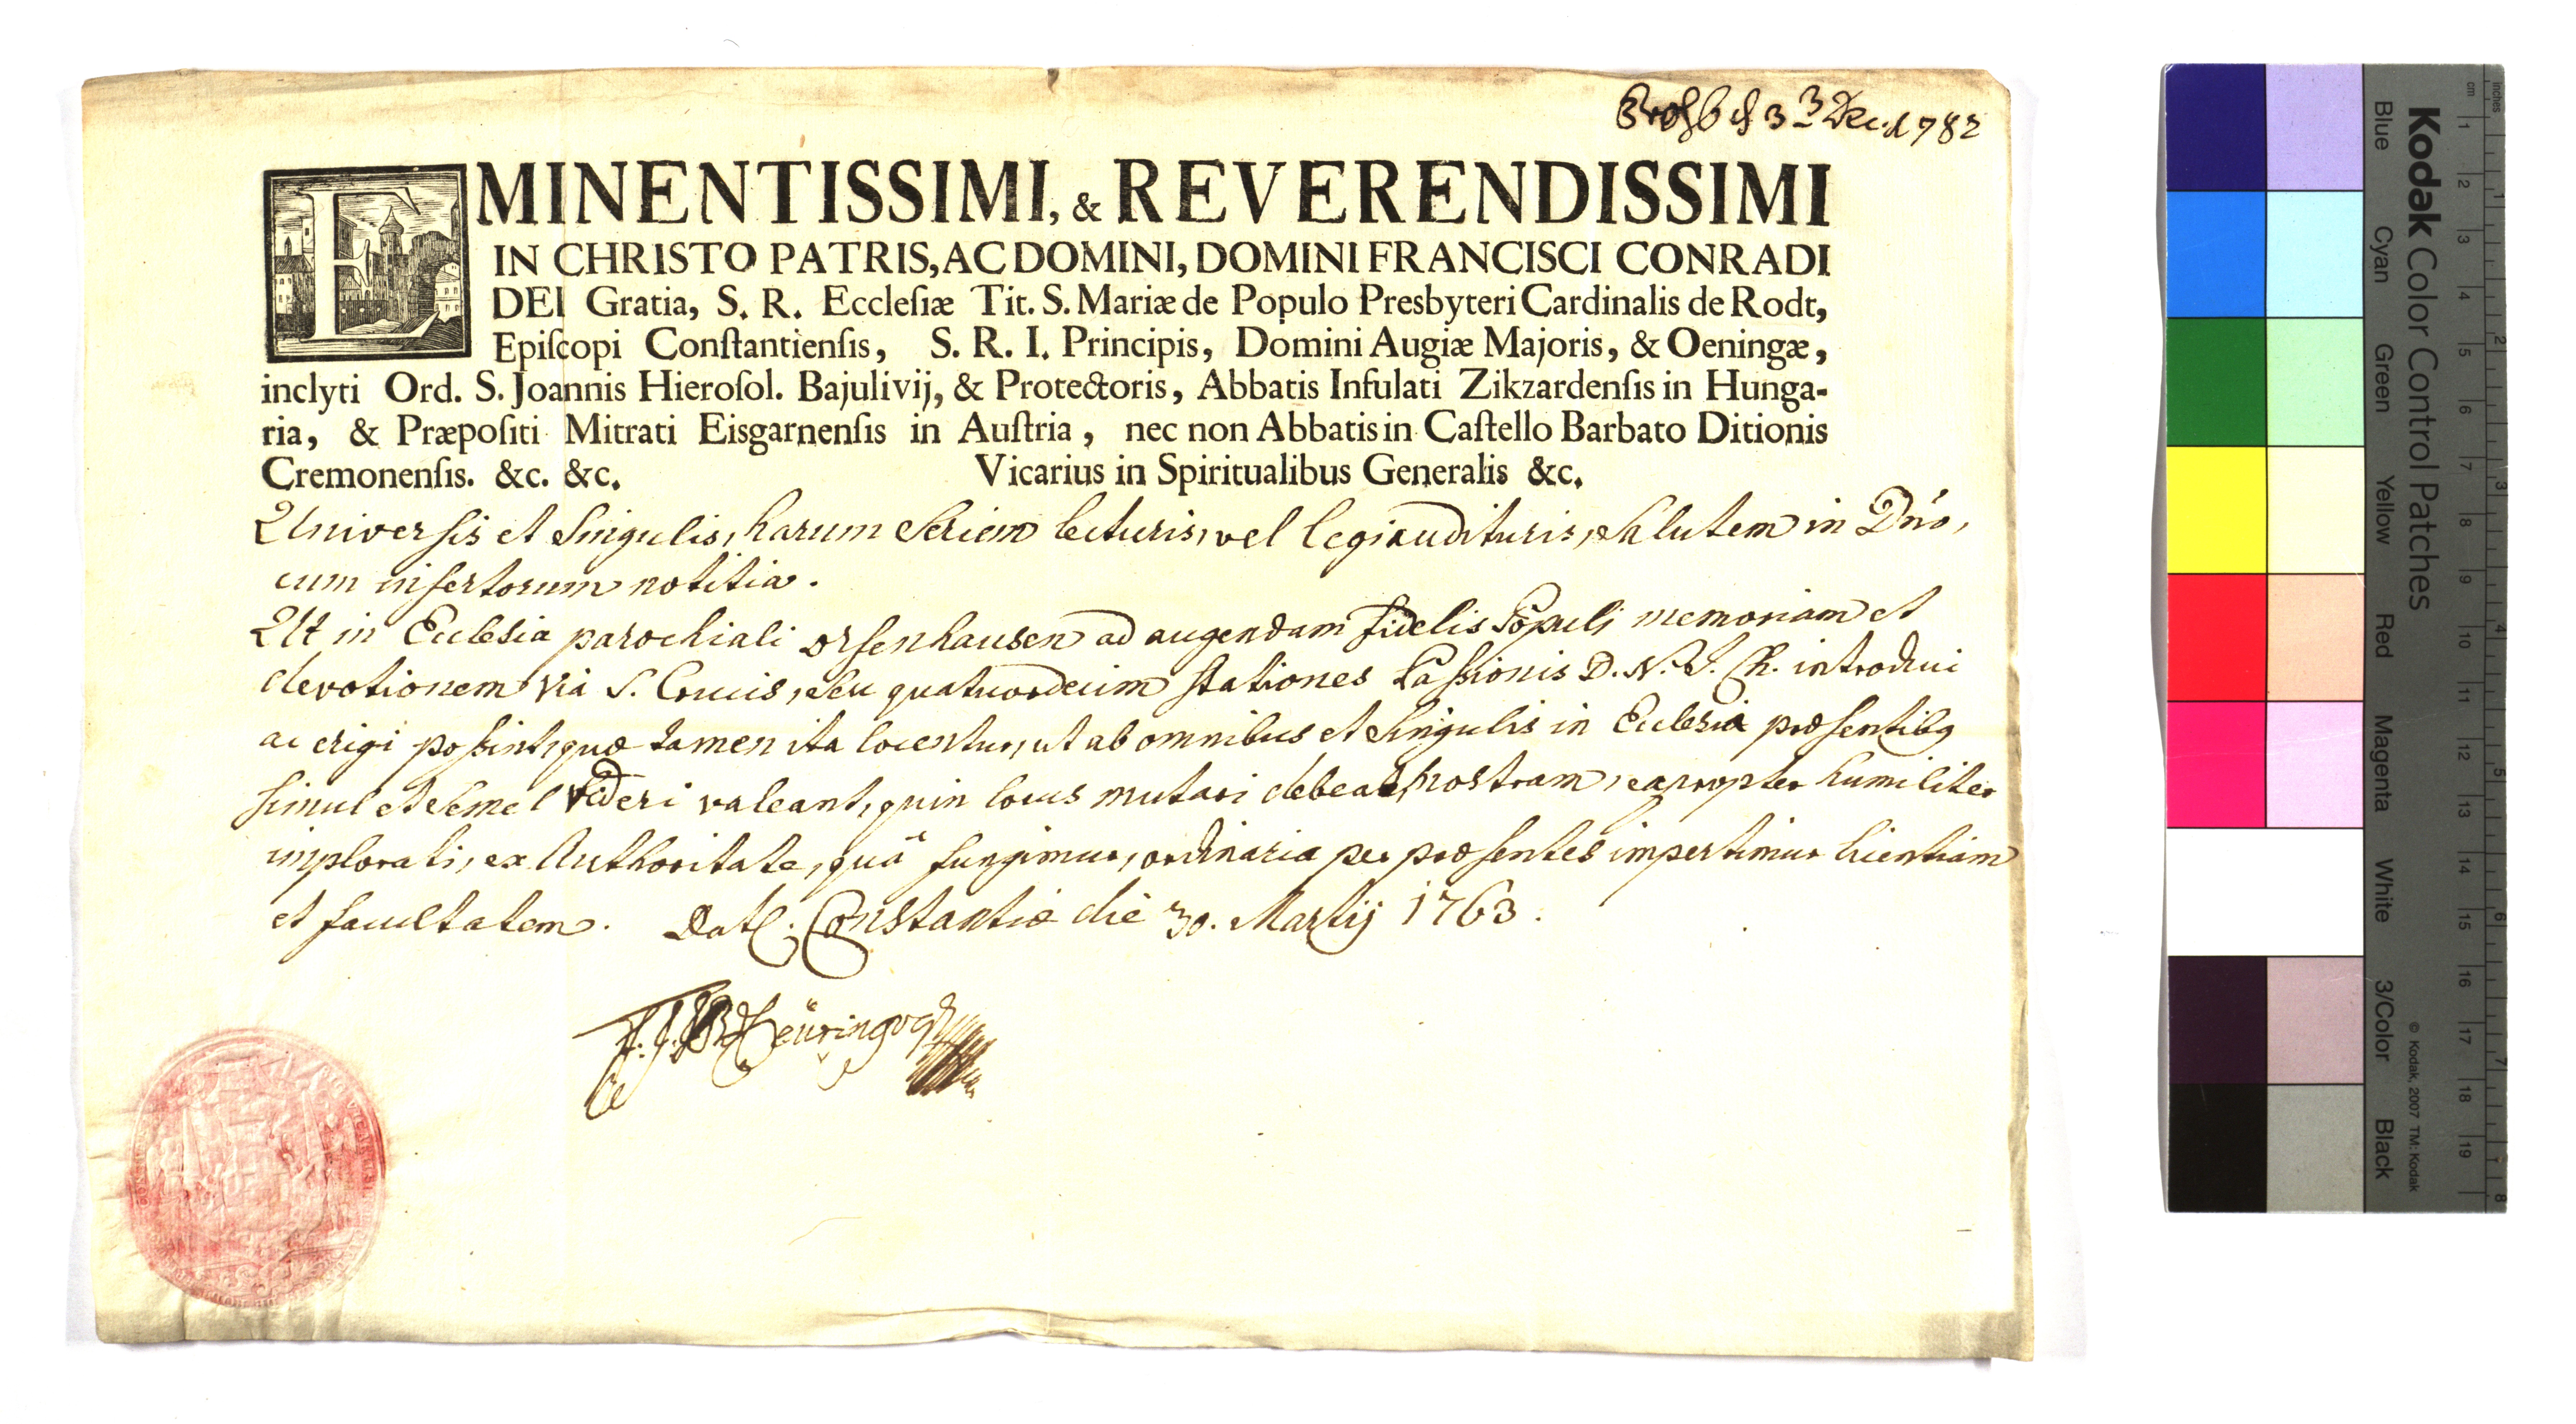 3 Dec. 1782
EMINENTISSIMI, & REVERENDISSIMI
IN CHRISTO PATRIS, AC DOMINI, DOMINI FRANCISCI CONRADI
DEI Gratia, S. R. Eccleſiæ Tit. S. Mariæ de Populo Presbyteri Cardinalis de Rodt,
Epiſcopi Conſtantienſis, S. R. I. Principis, Domini Augiæ Majoris, & Oeningæ,
inclyti Ord. S. Joannis Hieroſol. Bajulivij, & Protectoris, Abbatis Infulati Zikzardenſis in Hunga-
ria, & Præpoſiti Mitrati Eisgarnenſis in Auſtria, nec non Abbatis in Caſtello Barbato Ditionis
Cremonenſis. &c. &c. Vicarius in Spiritualibus Generalis &c.
Universis et Singulis, harum Seriem lecturis, vel legi audituris, Salutem in Dño,
cum insertorum notitia.
Ut in Ecclesia parochiali Orsenhausen ad augendam fidelis Populi memoriam et
devotionem via S. Crucis, seu quatuordecim stationes Passionis D. N. J. Ch. introduci
ac erigi possint, quæ tamen ita locentur, ut ab omnibus et singulis in Ecclesia præsentibq
simul et semel videri valeant, quin locus mutari debeat, nostram, eapropter humiliter
implorati, ex Authoritate, quâ fungimur, ordinaria per præsentes impertimur licentiam
et facultatem. Dat. Constantiæ die 30. Martij 1763.
Kodak Color Control Patches
© Kodak, 2007 TM: Kodak
Blue Cyan Green Yellow Red Magenta White 3/Color Black
cm 1 2 3 4 5 6 7 8 9 10 11 12 13 14 15 16 17 18 19
Inches 1 2 3 4 5 6 7 8